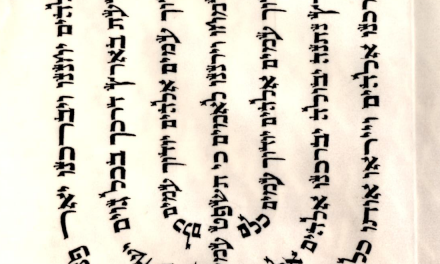 אלהים יחננו ויברכנו יאר
עת בארץ דרכך בכל גוים
דוך עמים אלהים יודוך עמים כלם
מחו וירננו לאמים כי תשפט עמים
דוך עמים אלהים יודוך עמים כלם
רץ נתנה יבולה יברכנו אלהים
רכנו אלהים וייראו אותו כל